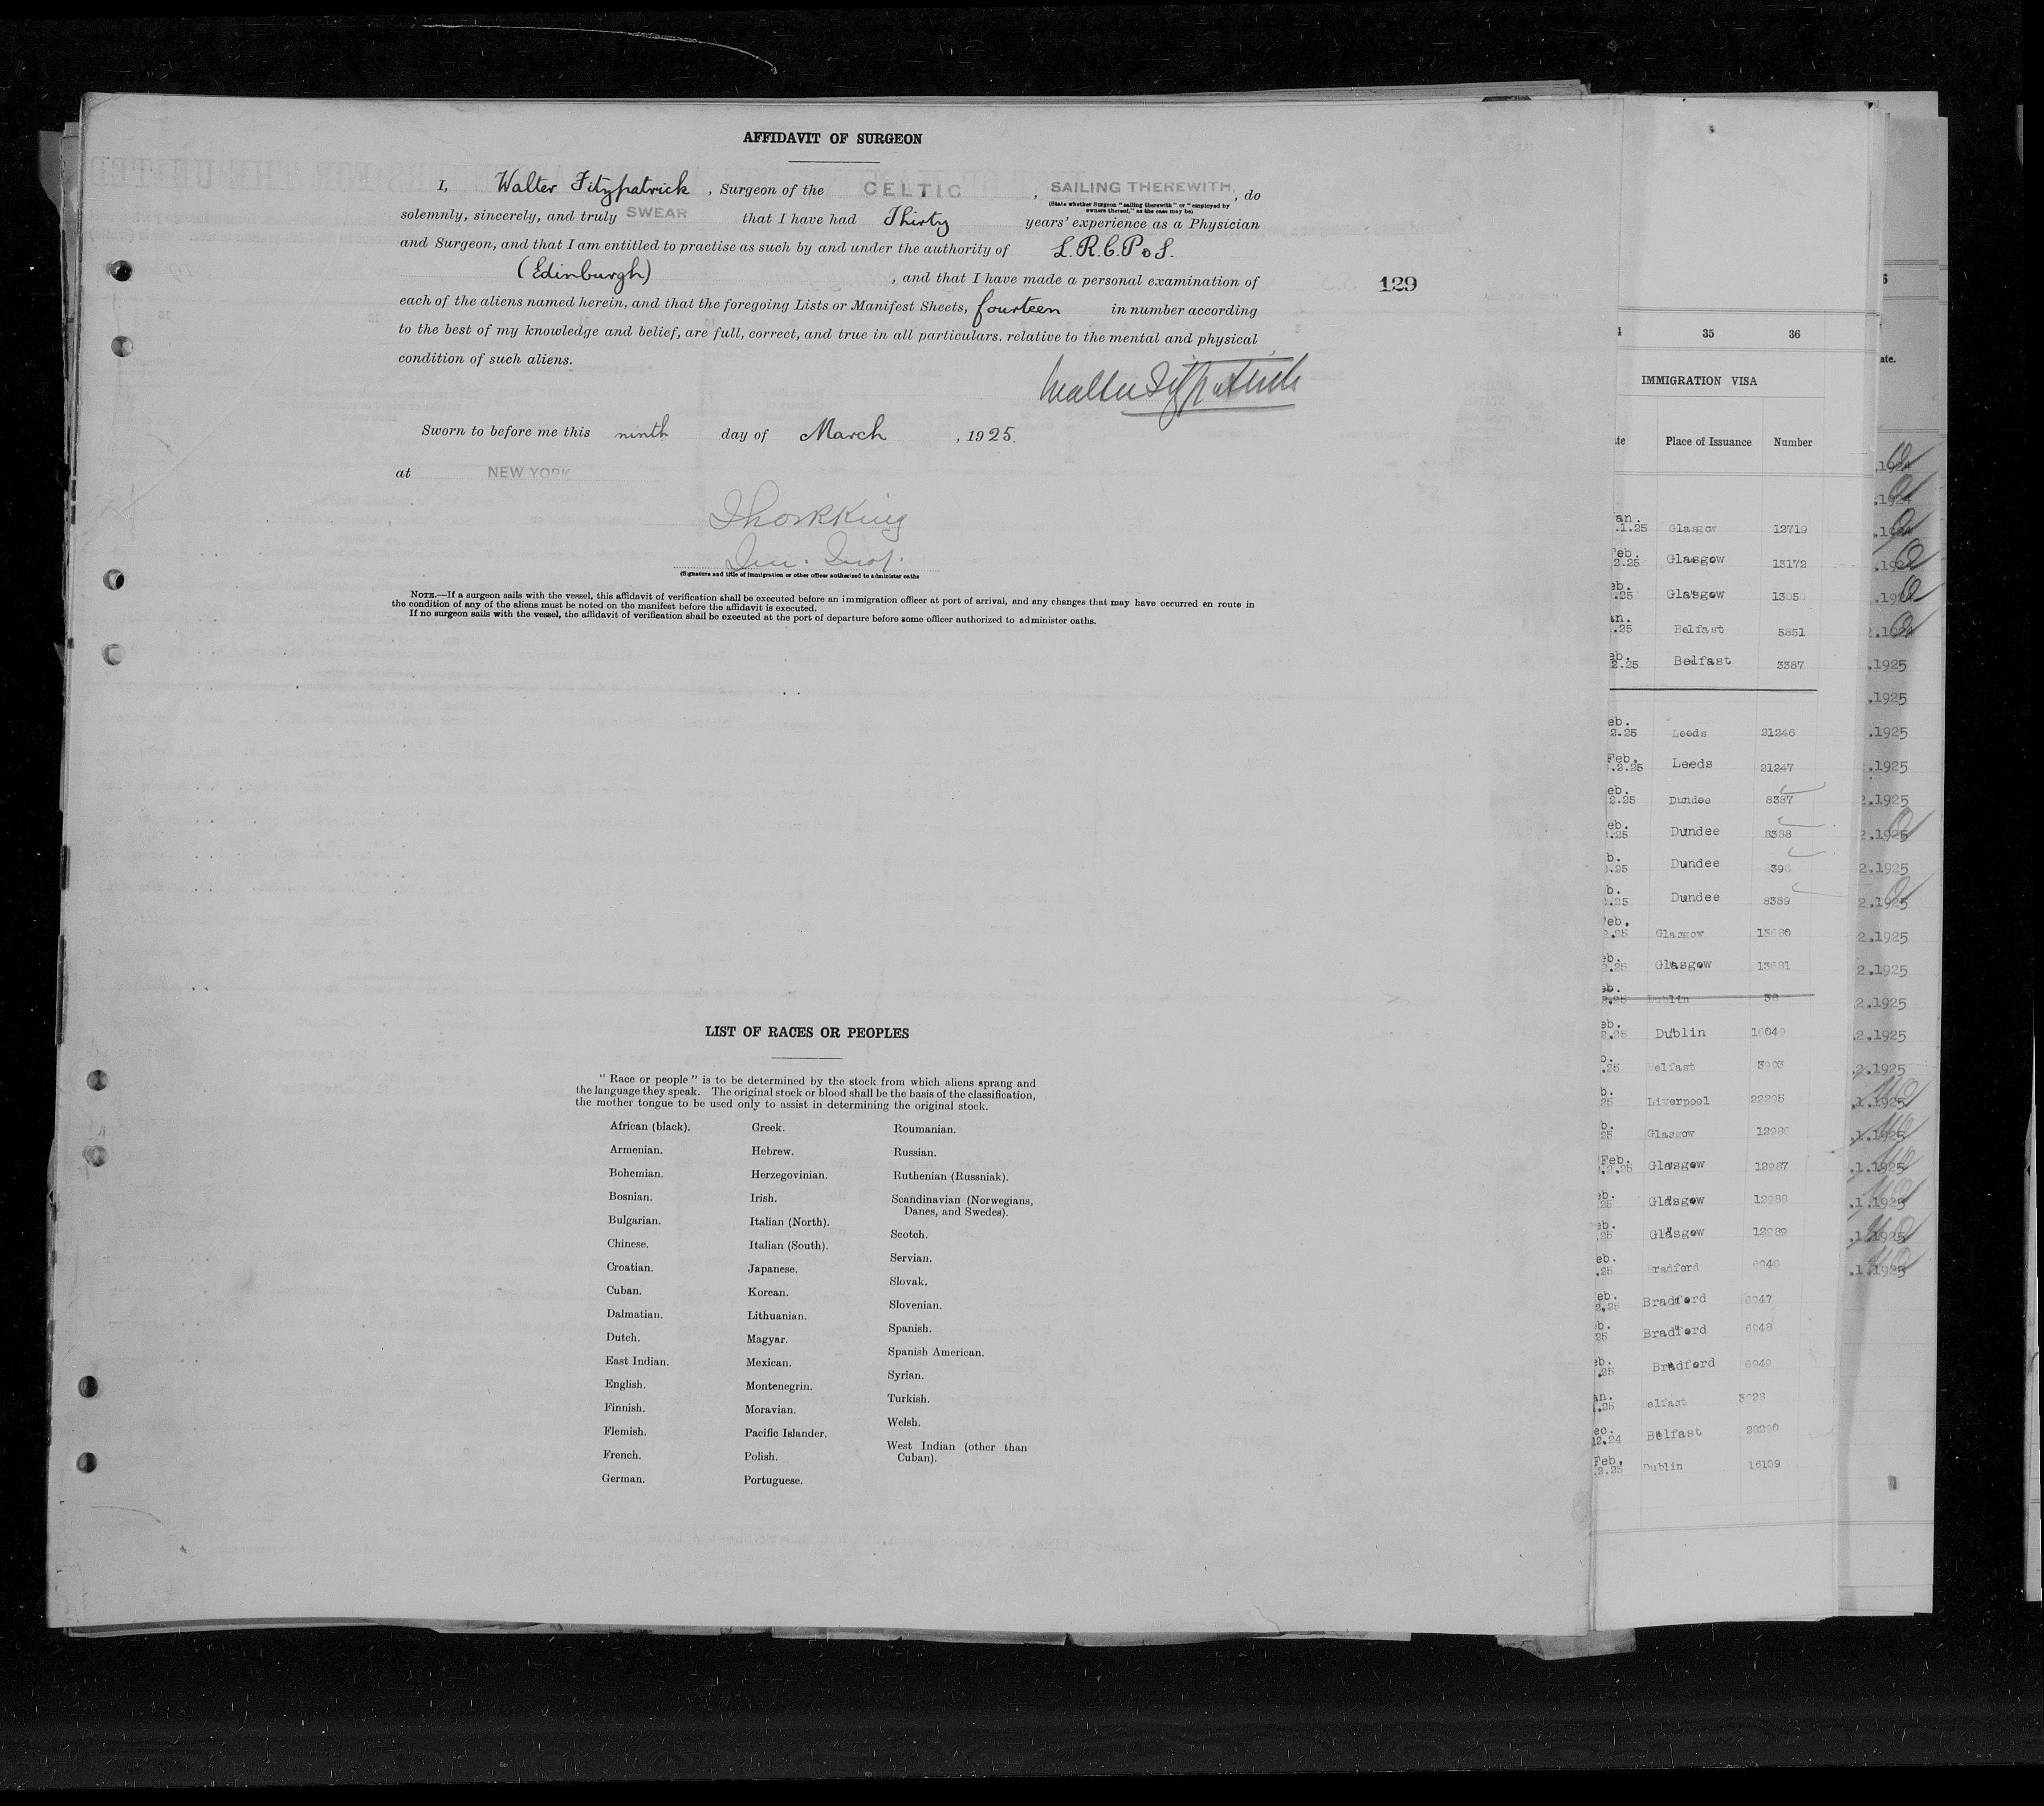 AFFIDAVIT OF SURGEON
I, Walter Fitzpatrick , Surgeon of the CELTIC , SAILING THEREWITH, , do
(State whether Surgeon "sailing therewith" or "employed by
owners thereof," as the case may be)
solemnly, sincerely, and truly SWEAR that I have had Thirty years' experience as a Physician
and Surgeon, and that I am entitled to practise as such by and under the authority of L.R.C.P & S.
(Edinburgh) , and that I have made a personal examination of
129
each of the aliens named herein, and that the foregoing Lists or Manifest Sheets, fourteen in number according
to the best of my knowledge and belief, are full, correct, and true in all particulars. relative to the mental and physical
condition of such aliens.
Walter Fitzpatrick
Sworn to before me this ninth day of March , 1925.
at NEW YORK
(Signature and title of immigration or other officer authorised to administer oaths
NOTE.—If a surgeon sails with the vessel, this affidavit of verification shall be executed before an immigration officer at port of arrival, and any changes that may have occurred en route in
the condition of any of the aliens must be noted on the manifest before the affidavit is executed.
If no surgeon sails with the vessel, the affidavit of verification shall be executed at the port of departure before some officer authorized to administer oaths.
LIST OF RACES OR PEOPLES
"Race or people" is to be determined by the stock from which aliens sprang and
the language they speak. The original stock or blood shall be the basis of the classification,
the mother tongue to be used only to assist in determining the original stock.
African (black).
Armenian.
Bohemian.
Bosnian.
Bulgarian.
Chinese.
Croatian.
Cuban.
Dalmatian.
Dutch.
East Indian.
English.
Finnish.
Flemish.
French.
German.
Greek.
Hebrew.
Herzegovinian.
Irish.
Italian (North).
Italian (South).
Japanese.
Korean.
Lithuanian.
Magyar.
Mexican.
Montenegrin.
Moravian.
Pacific Islander.
Polish.
Portuguese.
Roumanian.
Russian.
Ruthenian (Russniak).
Scandinavian (Norwegians,
Danes, and Swedes).
Scotch.
Servian.
Slovak.
Slovenian.
Spanish.
Spanish American.
Syrian.
Turkish.
Welsh.
West Indian (other than
Cuban).
35 36
IMMIGRATION VISA
Place of Issuance Number
.1.25 Glasgow 12719
2.25 Glasgow 13172
.25 Glasgow 13050
.25 Belfast 5851
2.25 Belfast 3387
2.25 Leeds 21246
.2.25 Leeds 21247
2.25 Dundee 8387
.25 Dundee 8388
.25 Dundee 390
.25 Dundee 8389
.25 Glasgow 13680
2.25 Glasgow 13681
2.25 Dublin 16049
.25 elfast
25 Liverpool 22295
25 Glasgow
.2.25 Glasgow 12987
25 Glasgow 12988
.25 Glasgow 12989
.25 radford 6046
2.25 Bradford 6047
25 Bradford 6048
.25 Bradford 6049
.25 elfast 3028
12.24 Belfast
.2.25 Dublin 16109
.1925
.1925
.1925
.1925
2.1925
2.1925
2.1925
2.1925
2.1925
2.1925
2.1925
2.1925
.2.1925
.1.1925
.1.1925
.1.1925
.1.1925
.1.1925
.1.1925